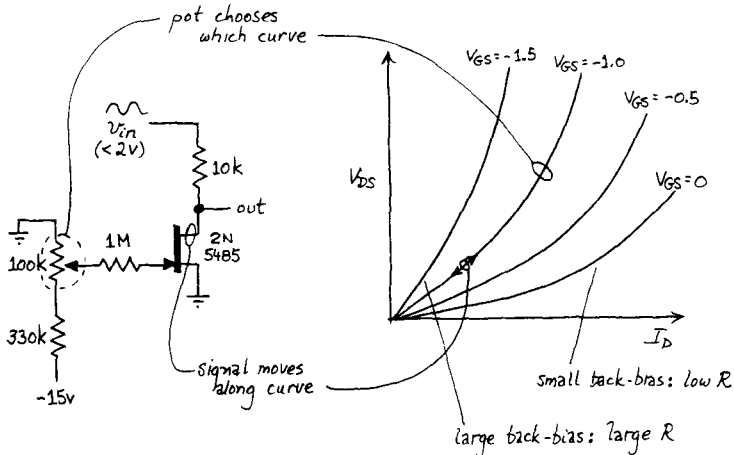 pot chooses
which curve
vin
(<2v)
10k
out
1M
2N
5485
100k
330k
-15v
signal moves
along curve
VGS=-1.5
VGS=-1.0
VGS=-0.5
VGS=0
VDS
ID
small back-bias: low R
large back-bias: large R